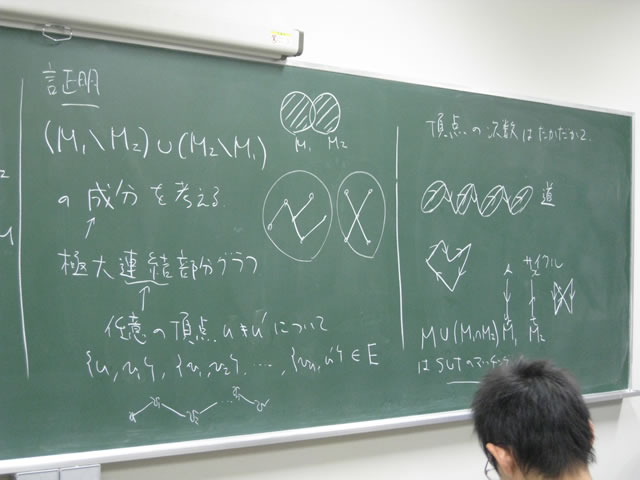 証明
(M₁\M₂)∪(M₂\M₁)
M₁ M₂
の成分を考える.
極大連結部分グラフ
任意の頂点 u≠u'について
{u,v₁}, {v₁,v₂}, …, {vₙ,u'}∈E
頂点の次数はたかだか2.
道
サイクル
M∪(M₁∩M₂) M̂₁ M̂₂
はS∪Tの